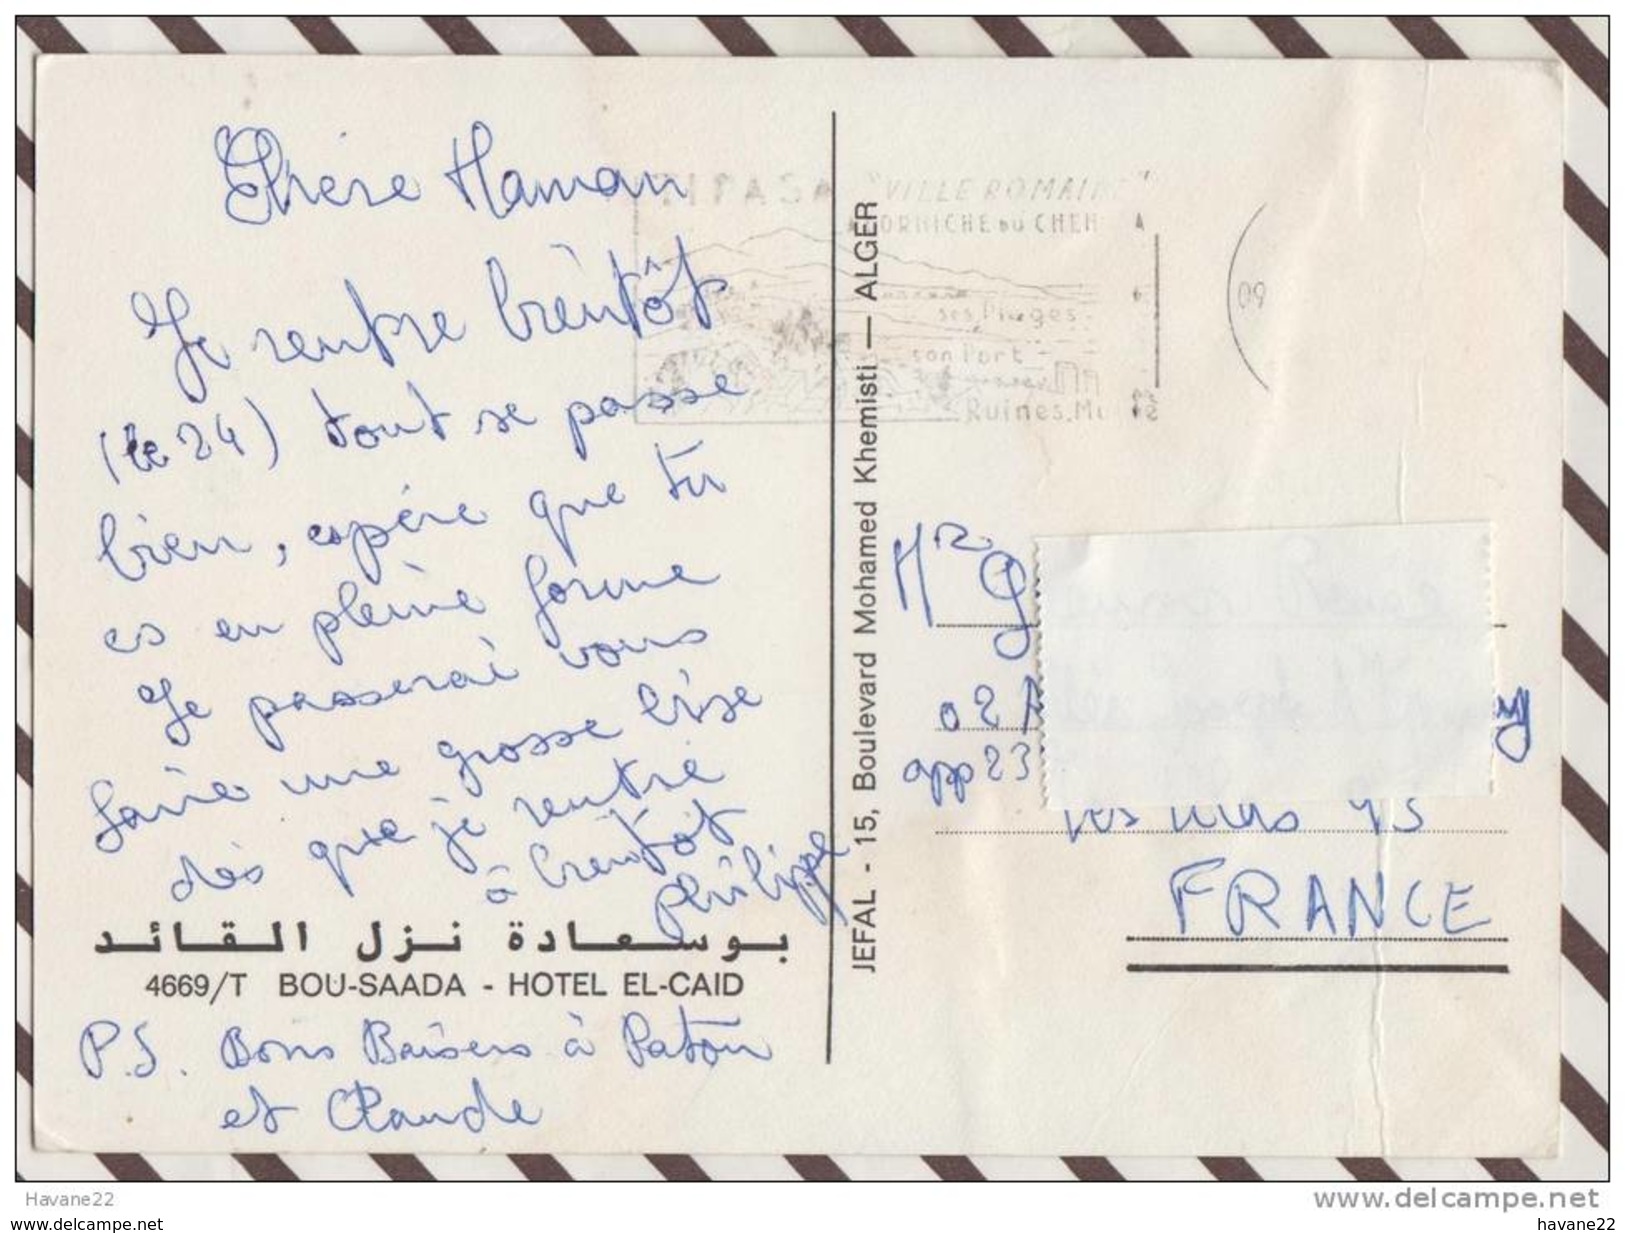 Chère Maman
Je rentre bientôt
(le 24) tout se passe
bien, espère que tu
es en pleine forme
Je passerai vous
faire une grosse bise
dès que je rentre
à bientôt
Philippe
بوسعادة نزل القائد
4669/T BOU-SAADA - HOTEL EL-CAID
P.S. Bons Baisers à Paton
et Claude
JEFAL - 15, Boulevard Mohamed Khemisti — ALGER
TIPASA "VILLE ROMAINE"
CORNICHE DU CHEN
ses Plages
son Port
Ruines. Mu
09
02 A
app 23
93
FRANCE
Havane22
www.delcampe.net
www.delcampe.net
havane22